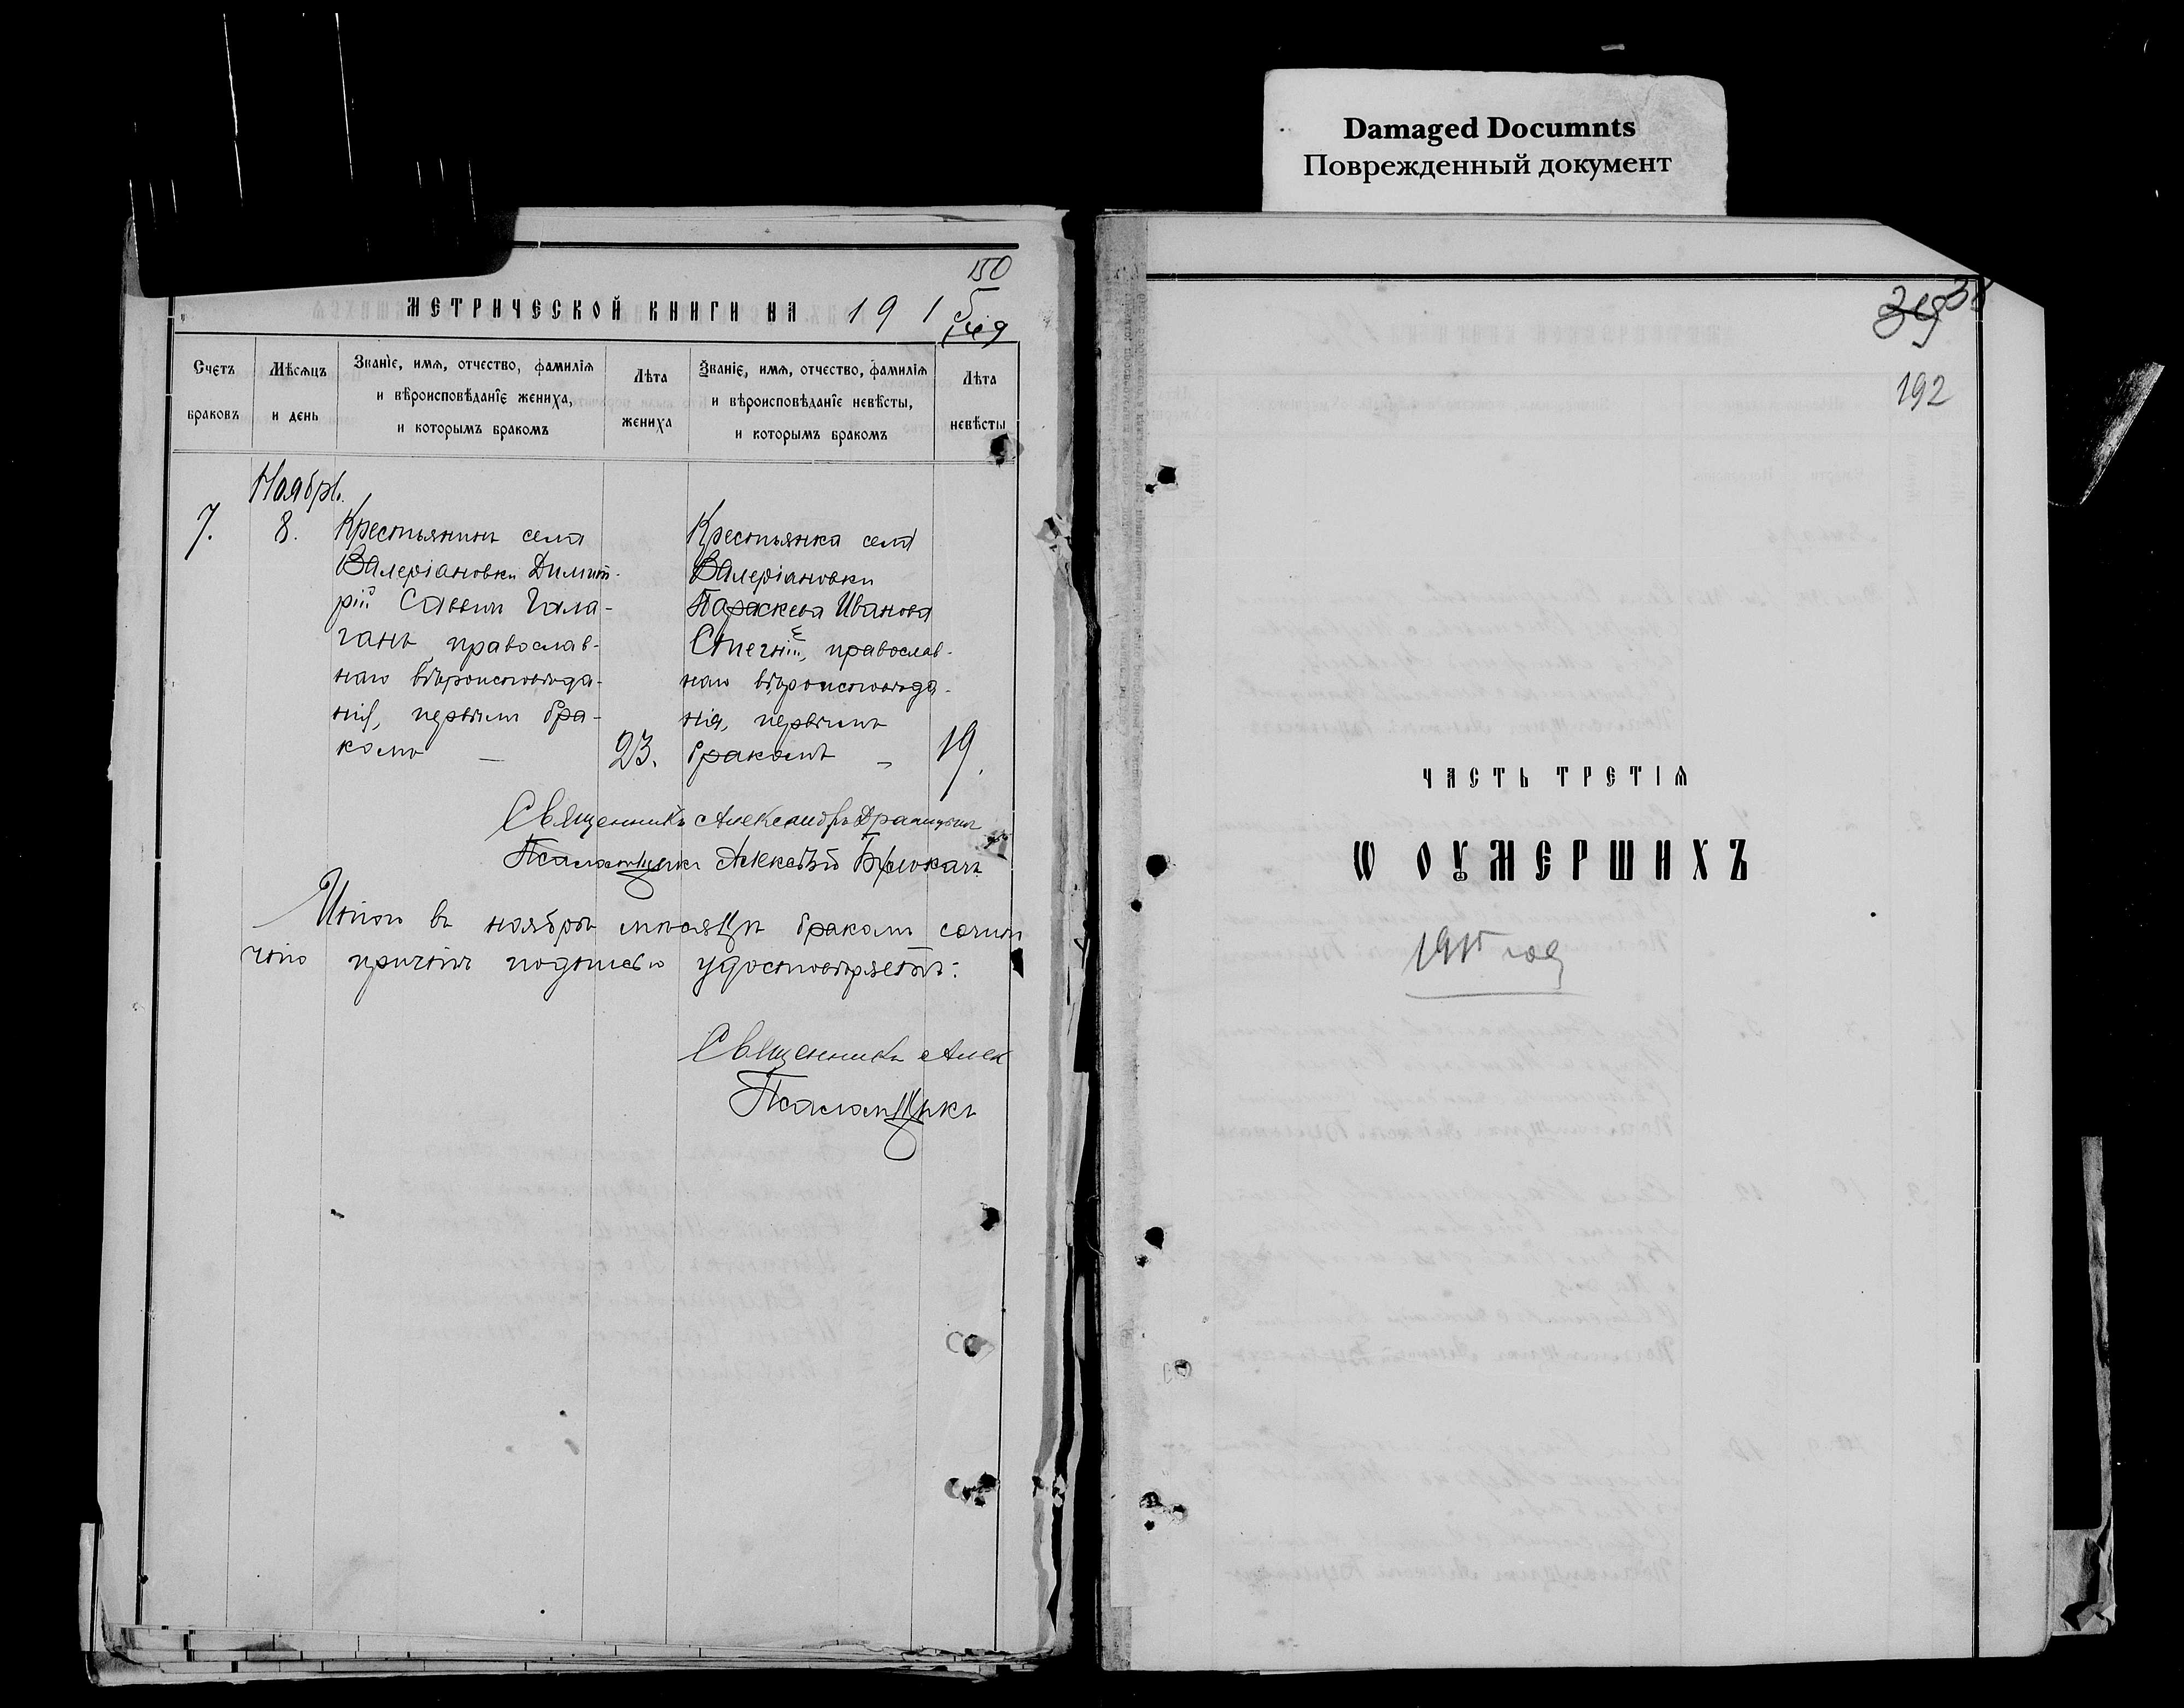 Damaged Documnts
Поврежденный документ
150
МЕТРИЧЕСКОЙ КНИГИ НА 191
149
Счетъ браковъ
Мѣсяцъ и день
Званіе, имя, отчество, фамилія и вѣроисповѣданіе жениха, и которымъ бракомъ
Лѣта жениха
Званіе, имя, отчество, фамилія и вѣроисповѣданіе невѣсты, и которымъ бракомъ
Лѣта невѣсты
Ноябрь.
7. 8.
Крестьянинъ села
Валеріановки Димит-
рій Саввинъ Гала-
ганъ, православ-
наго вѣроисповѣда-
нія, первымъ бра-
комъ
23.
Крестьянка села
Валеріановки
Параскева Иванова
православ-
наго вѣроисповѣда-
нія, первымъ
бракомъ
19.
Священникъ Александръ
Псаломщикъ Алексѣй
Итого въ ноябрѣ мѣсяцѣ бракомъ
причтъ подписью удостовѣряетъ:
Священникъ Алек
Псаломщикъ
38
192
ЧАСТЬ ТРЕТІЯ
Ѡ ОУМЕРШИХЪ
1915 год